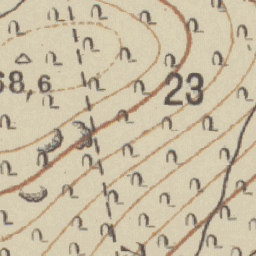 68,6
23